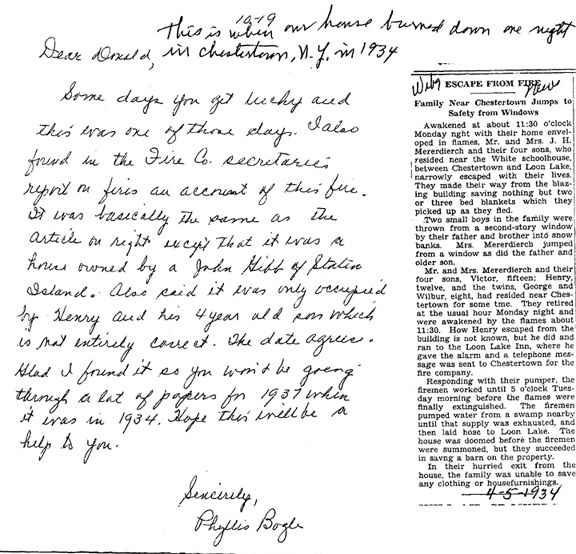 This is when our house burned down one night
in Chestertown, N.Y. in 1934
10-19
Dear Donald,
Some days you get lucky and
this was one of those days. I also
found in the Fire Co. secretaries
report on fires an account of this fire.
It was basically the same as the
article on right except that it was a
house owned by a John Hibb of Staten
Island. Also said it was only occupied
by Henry and his 4 year old son which
is not entirely correct. The date agrees.
Glad I found it so you won't be going
through a lot of papers for 1937 when
it was in 1934. Hope this will be a
help to you.
Sincerely,
Phyllis Bogle
ESCAPE FROM FIRE
Family Near Chestertown Jumps to
Safety from Windows
Awakened at about 11:30 o'clock
Monday nght with their home envel-
oped in flames, Mr. and Mrs. J. H.
Mererdierch and their four sons, who
resided near the White schoolhouse,
between Chestertown and Loon Lake,
narrowly escaped with their lives.
They made their way from the blaz-
ing building saving nothing but two
or three bed blankets which they
picked up as they fled.
Two small boys in the family were
thrown from a second-story window
by their father and brother into snow
banks. Mrs. Mererdierch jumped
from a window as did the father and
older son.
Mr. and Mrs. Mererdierch and their
four sons, Victor, fifteen; Henry,
twelve, and the twins, George and
Wilbur, eight, had resided near Ches-
tertown for some time. They retired
at the usual hour Monday night and
were awakened by the flames about
11:30. How Henry escaped from the
building is not known, but he did and
ran to the Loon Lake Inn, where he
gave the alarm and a telephone mes-
sage was sent to Chestertown for the
fire company.
Responding with their pumper, the
firemen worked until 5 o'clock Tues-
day morning before the flames were
finally extinguished. The firemen
pumped water from a swamp nearby
until that supply was exhausted, and
then laid hose to Loon Lake. The
house was doomed before the firemen
were summoned, but they succeeded
in savng a barn on the property.
In their hurried exit from the
house, the family was unable to save
any clothing or housefurnishings.
4-5-1934